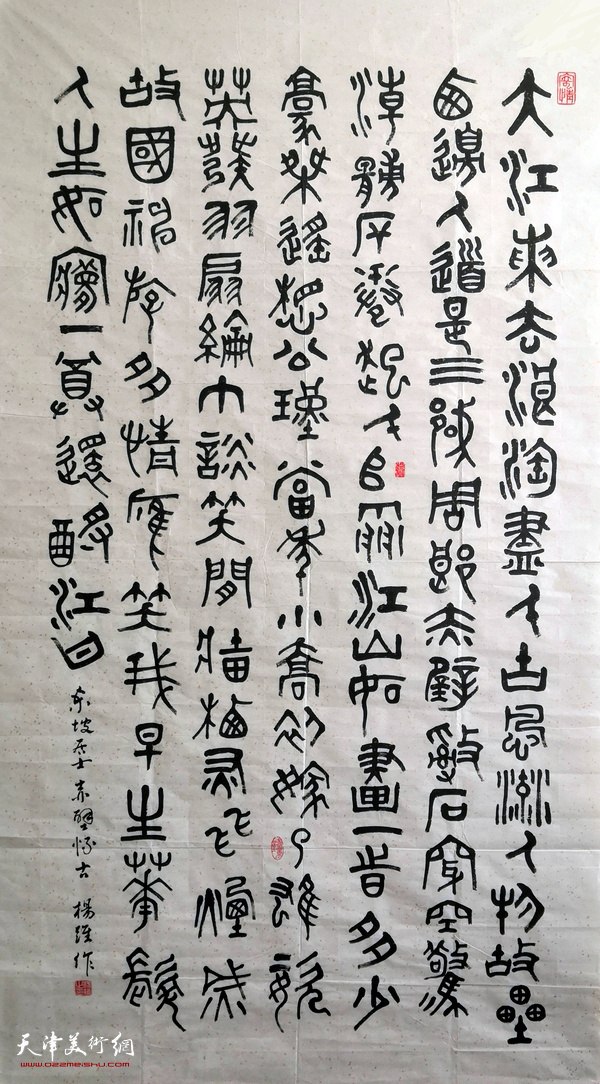 大江東去浪淘盡千古風流人物故壘
西邊人道是三國周郎赤壁亂石穿空驚
濤拍岸捲起千堆雪江山如畫一時多少
豪傑遙想公瑾當年小喬初嫁了雄姿
英發羽扇綸巾談笑間檣櫓灰飛煙滅
故國神遊多情應笑我早生華髮
人生如夢一尊還酹江月
東坡居士赤壁懷古 楊維作
天津美術網
www.022meishu.com